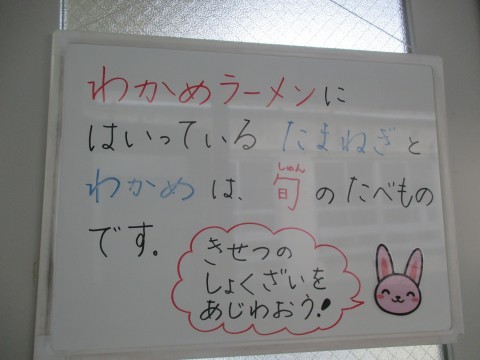 わかめラーメンに
はいっている たまねぎと
わかめは、旬のたべもの
しゅん
です。
きせつの
しょくざいを
あじわおう!